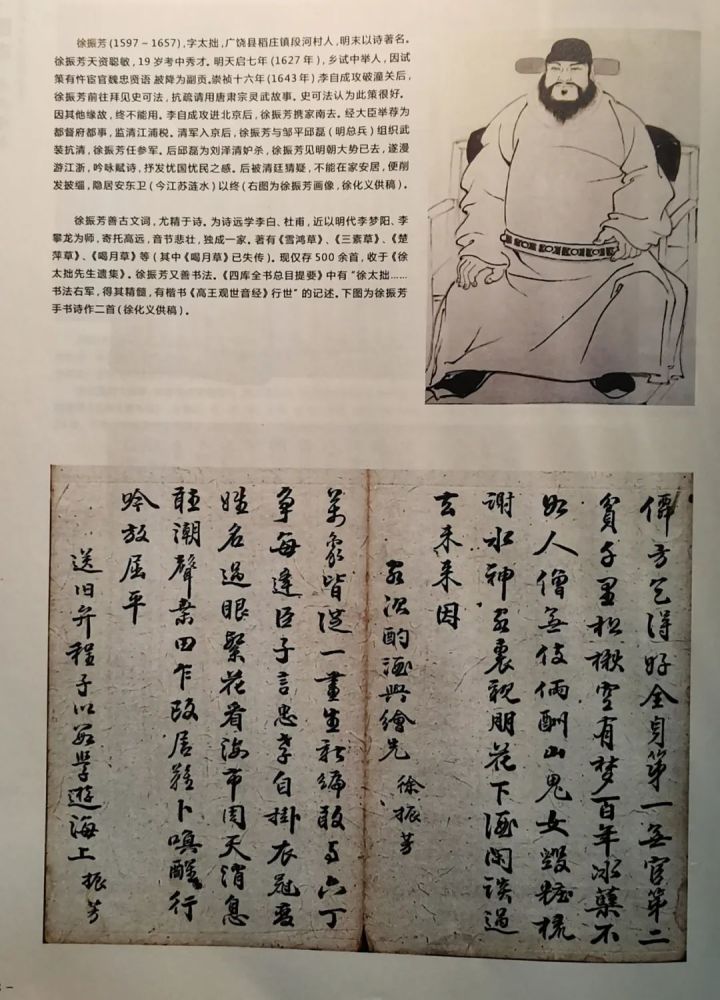 徐振芳(1597-1657),字太拙,广饶县稻庄镇段河村人,明末以诗著名。
徐振芳天资聪敏,19岁考中秀才。明天启七年(1627年),乡试中举人,因试
策有忤宦官魏忠贤语 被降为副贡。崇祯十六年(1643年),李自成攻破潼关后,
徐振芳前往拜见史可法,抗疏请用唐肃宗灵武故事。史可法认为此策很好。
因其他缘故,终不能用。李自成攻进北京后,徐振芳携家南去。经大臣举荐为
都督府都事,监清江浦税。清军入京后,徐振芳与邹平邱磊(明总兵)组织武
装抗清,徐振芳任参军。后邱磊为刘泽清妒杀,徐振芳见明朝大势已去,遂漫
游江浙,吟咏赋诗,抒发忧国忧民之感。后被清廷猜疑,不能在家安居,便削
发披缁,隐居安东卫(今江苏涟水)以终(右图为徐振芳画像,徐化义供稿)。
徐振芳善古文词,尤精于诗。为诗远学李白、杜甫,近以明代李梦阳、李
攀龙为师,寄托高远,音节悲壮,独成一家。著有《雪鸿草》、《三素草》、《楚
萍草》、《喝月草》等(其中《喝月草》已失传)。现仅存500余首,收于《徐
太拙先生遗集》。徐振芳又善书法。《四库全书总目提要》中有“徐太拙……
书法右军,得其精髓,有楷书《高王观世音经》行世”的记述。下图为徐振芳
手书诗作二首(徐化义供稿)。
方乞得好全身第一無官第二
貧千里松楸空有梦百年冰蘖不
如人僧無伎俩酬山鬼女毁粧梳
謝水神親朋花下酒閑談過
去未来因
酌酒與繪先 徐振芳
萬象皆從一畫生敢与六丁
争每逢臣子言忠孝自掛衣冠変
姓名過眼繁花看海市周天消息
聴潮聲乍改居難卜嗅醒行
吟放屈平
送旧弁程子以學遊海上 振芳